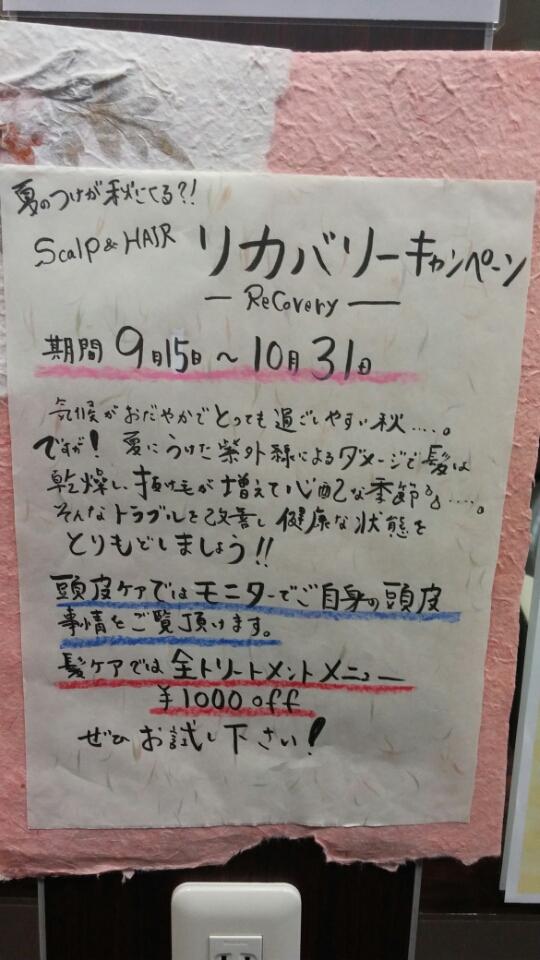 夏のつけが秋にくる?!
Scalp & HAIR リカバリーキャンペーン
— ReCovery —
期間 9月15日 〜 10月31日
気候がおだやかでとっても過ごしやすい秋....。
ですが! 夏にうけた紫外線によるダメージで髪は
乾燥し、抜け毛が増えて心配な季節。....。
そんなトラブルを改善し健康な状態を
とりもどしましょう!!
頭皮ケアではモニターでご自身の頭皮
事情をご覧頂けます。
髪ケアでは全トリートメントメニュー
¥1000 off
ぜひお試し下さい!